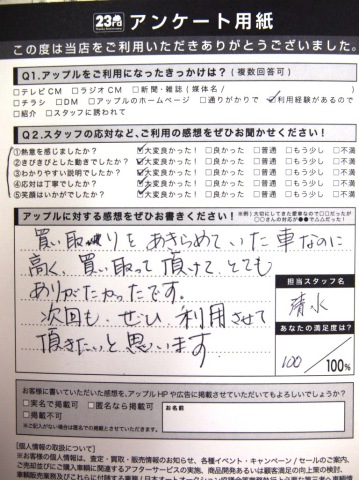 23rd アンケート用紙
この度は当店をご利用いただきありがとうございました。
Q1.アップルをご利用になったきっかけは?(複数回答可)
□テレビCM □ラジオCM □新聞・雑誌(媒体名/ )
□チラシ □DM □アップルのホームページ □通りがかりで ☑利用経験があるので
□紹介 □スタッフに誘われて
Q2.スタッフの応対など、ご利用の感想をぜひお聞かせください!
①熱意を感じましたか? ☑大変良かった! □良かった □普通 □もう少し □不満
②きびきびとした動きでしたか? ☑大変良かった! □良かった □普通 □もう少し □不満
③わかりやすい説明でしたか? ☑大変良かった! □良かった □普通 □もう少し □不満
④応対は丁寧でしたか? ☑大変良かった! □良かった □普通 □もう少し □不満
⑤笑顔はいかがでしたか? ☑大変良かった! □良かった □普通 □もう少し □不満
アップルに対する感想をぜひお書きください!
買い取りをあきらめていた車なのに
高く、買い取って頂けて、とても
ありがたかったです。
次回も、ぜひ利用させて
頂きたいと思います
担当スタッフ名
清水
あなたの満足度は?
100/100%
お客様に書いていただいた感想を、アップルHPや広告に掲載させていただいてもよろしいでしょうか?
□実名で掲載可 □匿名なら掲載可
□掲載不可
お名前
※ご記入がない場合は匿名での掲載とさせていただきます。
【個人情報の取扱について】
※お客様の個人情報は、査定・買取・販売情報のお知らせ、各種イベント・キャンペーン/セールのご案内、
ご売却並びにご購入車輌に関連するアフターサービスの実施、商品開発あるいは顧客満足の向上策の検討、